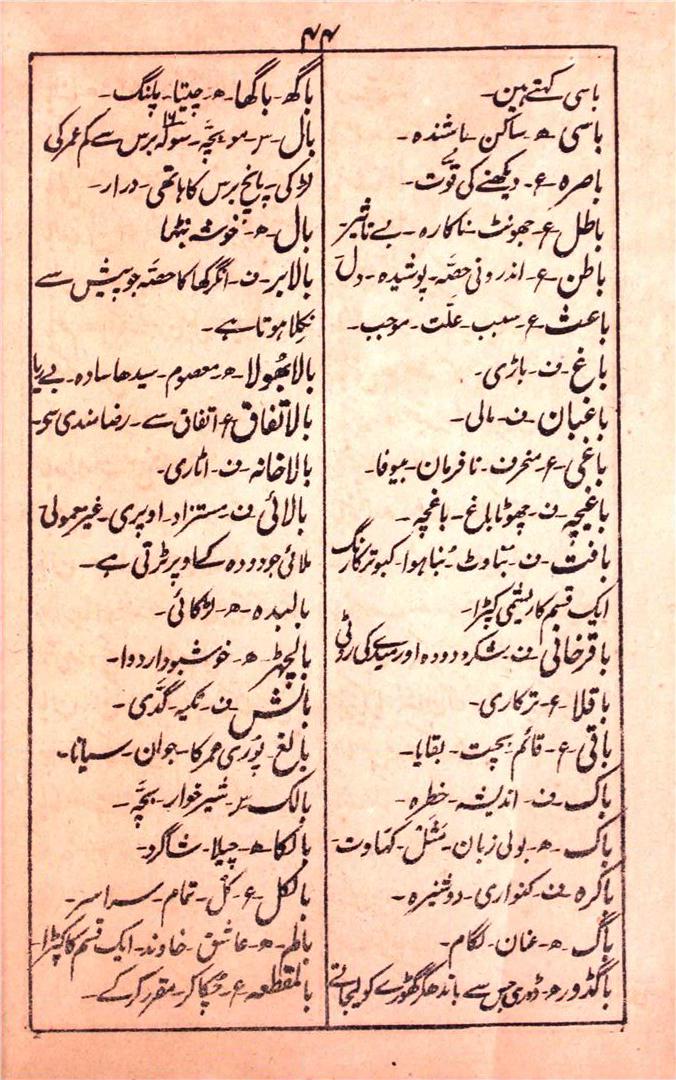 ۴۴
باسی کہتے ہین۔
باسی ھ۔ ساکن باشندہ۔
باصرہ ع۔ دیکھنے کی قوّت۔
باطل ع۔ جھونٹ۔ ناکارہ۔ بے تاثیر۔
باطن ع۔ اندرونی حصّہ۔ پوشیدہ۔ دل
باعث ع۔ سبب۔ علّت۔ موجب۔
باغ ف۔ باڑی۔
باغبان ف۔ مالی۔
باغی ع۔ منحرف۔ نافرمان۔ بیوفا۔
باغیچہ ف۔ چھوٹا باغ۔ باغچہ۔
بافت ف۔ بناوٹ۔ بُنا ہوا۔ کبوتر کا رنگ
ایک قسم کا ریشمی کپڑا۔
باقرخانی ف۔ شکر و دودہ اور میدے کی روٹی
باقلا ع۔ ترکاری۔
باقی ع۔ قائم۔ بچت۔ بقایا۔
باک ف۔ اندیشہ۔ خطرہ۔
باک ھ۔ بولی زبان۔ مثل۔ کہاوت۔
باکرہ ف۔ کنواری۔ دوشیزہ۔
باگ ھ۔ عنان۔ لگام۔
باگڈور ھ۔ ڈوری جس سے باندھکر گھوڑے کو لیجاتے
باگھ۔ باگھا۔ ھ۔ چیتا۔ پلنگ۔
بال۔ س۔ مو۔ بچّہ۔ سولہ ۱۶ برس سے کم عمر کی
لڑکی۔ پانچ برس کا ہاتھی۔ درار۔
بال۔ ھ۔ خوشہ۔ بٹھا
بالابر۔ ف۔ انگرکھا کا حصّہ جو پیش سے
نکلا ہوتا ہے۔
بالا بھولا۔ ھ۔ معصوم۔ سیدھا سادہ۔ بے ریا
بالاتفاق ع۔ اتفاق سے۔ رضامندی سی۔
بالاخانہ۔ ف۔ اٹاری۔
بالائی ف۔ مستزاد۔ اوپری۔ غیر معمولی
ملائی جو دودہ کے اوپر پڑتی ہے۔
بالبدہ۔ ھ۔
بالچھڑ۔ ھ۔ خوشبودار دوا۔
بالش ف۔ تکیہ۔ گدّی۔
بالغ۔ پوری عمر کا۔ جوان۔ سیانا۔
بالک س۔ شیر خوار۔ بچّہ۔
بالکا ھ۔ چیلا۔ شاگرد۔
بالکل ع۔ کُل۔ تمام۔ سراسر۔
بالم۔ ھ۔ عاشق۔ خاوند۔ ایک قسم کا کپڑا۔
بالمقطعہ ع۔ چُکا کر۔ مقرر کر کے۔